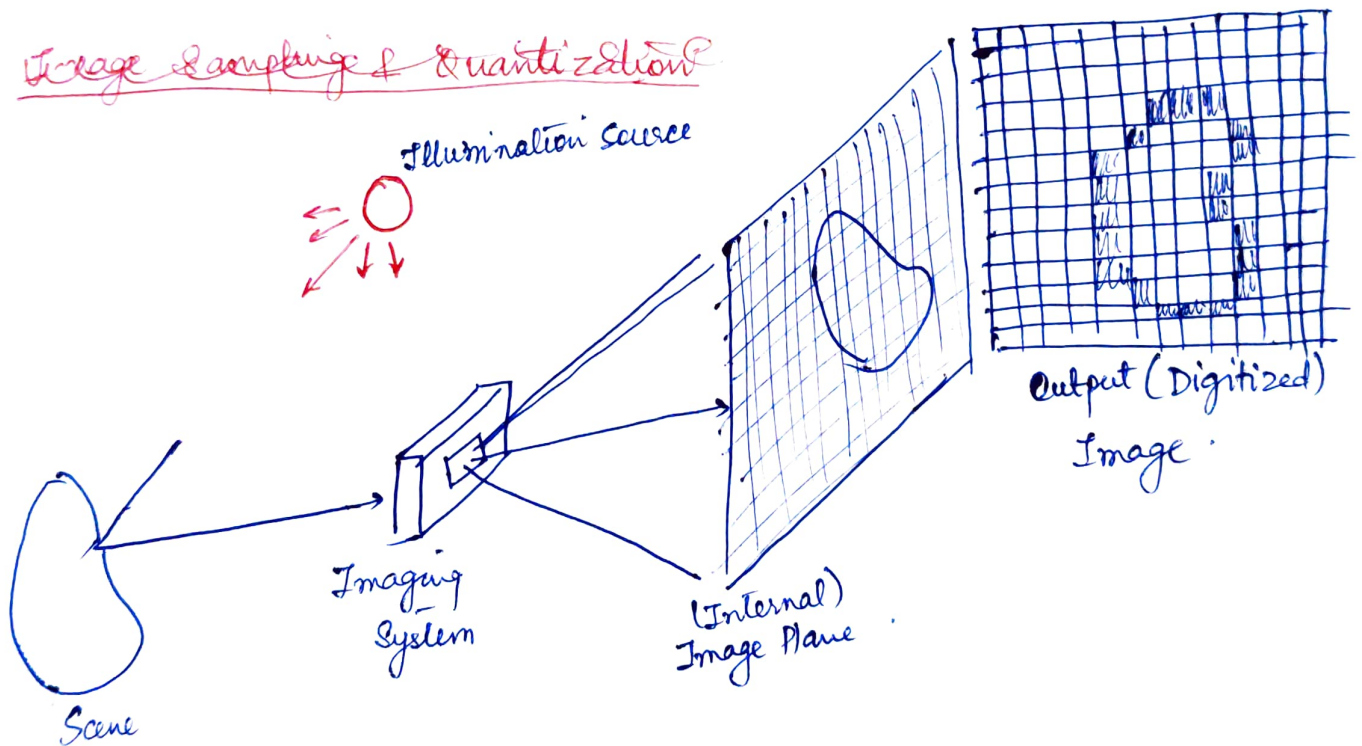 Image Sampling & Quantization
Illumination Source
Output (Digitized)
Image
Imaging
System
(Internal)
Image Plane
Scene